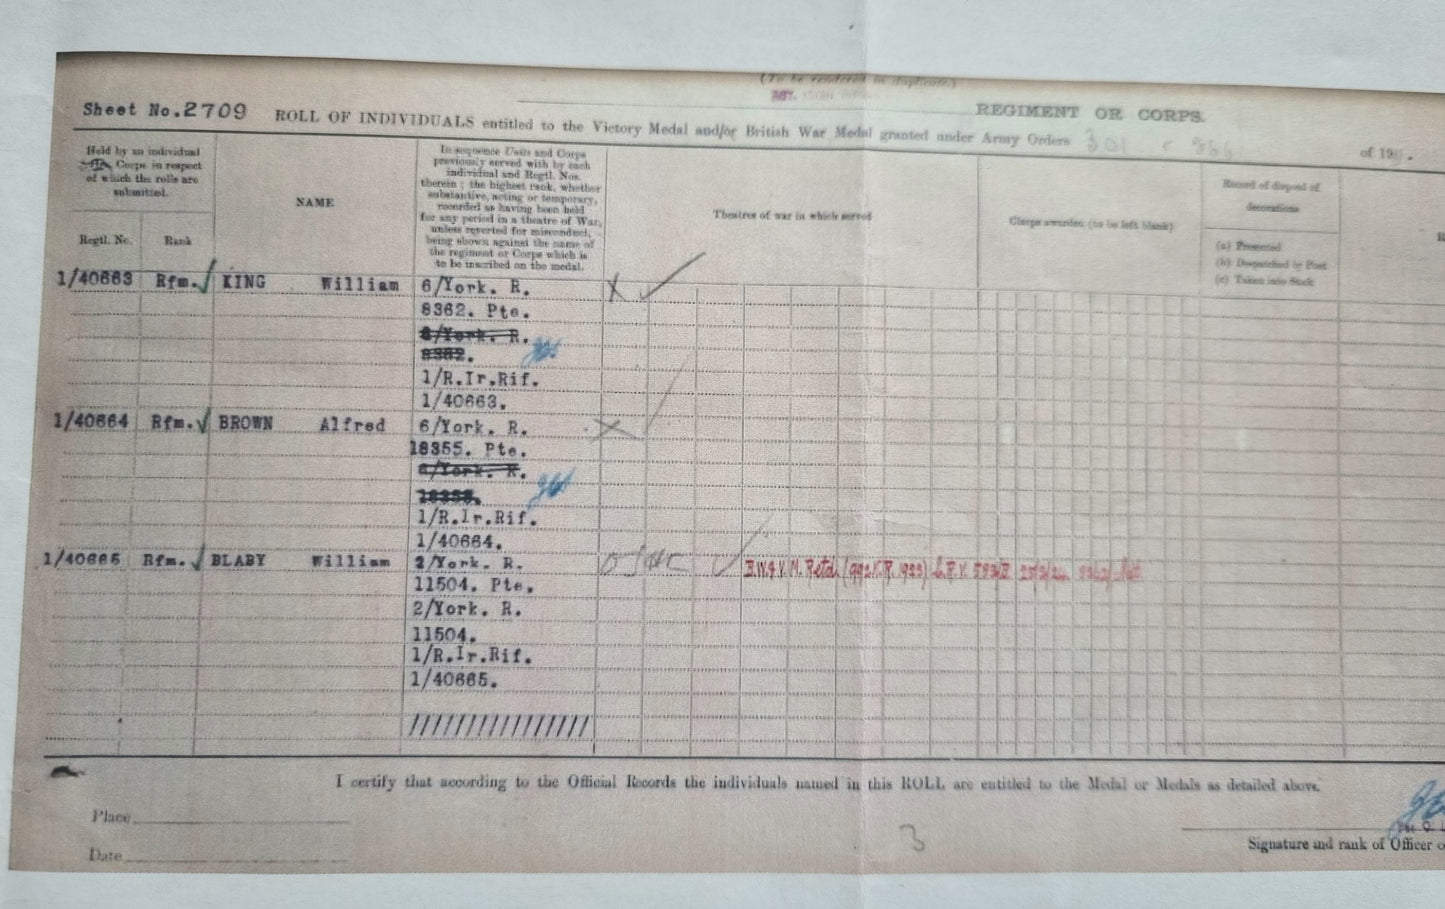 (To be rendered in duplicate)
REGIMENT OR CORPS.
Sheet No.2709 ROLL OF INDIVIDUALS entitled to the Victory Medal and/or British War Medal granted under Army Orders 301 of 19 .
Held by an individual
Corps in respect
of which the rolls are
submitted.
Regtl. No. Rank
NAME
In sequence Units and Corps
previously served with by each
individual and Regtl. Nos.
therein ; the highest rank, whether
substantive, acting or temporary,
recorded as having been held
for any period in a theatre of War,
unless reverted for misconduct,
being shown against the name of
the regiment or Corps which is
to be inscribed on the medal.
Theatres of war in which served
Clasps awarded (to be left blank)
Record of disposal of
decorations
(a) Presented
(b) Despatched by Post
(c) Taken into Stock
1/40663 Rfm. KING William 6/York. R.
8362. Pte.
6/York. R.
8362.
1/R.Ir.Rif.
1/40663.
1/40664 Rfm. BROWN Alfred 6/York. R.
18355. Pte.
6/York. R.
18355.
1/R.Ir.Rif.
1/40664.
1/40665 Rfm. BLABY William 2/York. R.
11504. Pte.
2/York. R.
11504.
1/R.Ir.Rif.
1/40665.
////////////////
I certify that according to the Official Records the individuals named in this ROLL are entitled to the Medal or Medals as detailed above.
Place
Date
3
Signature and rank of Officer